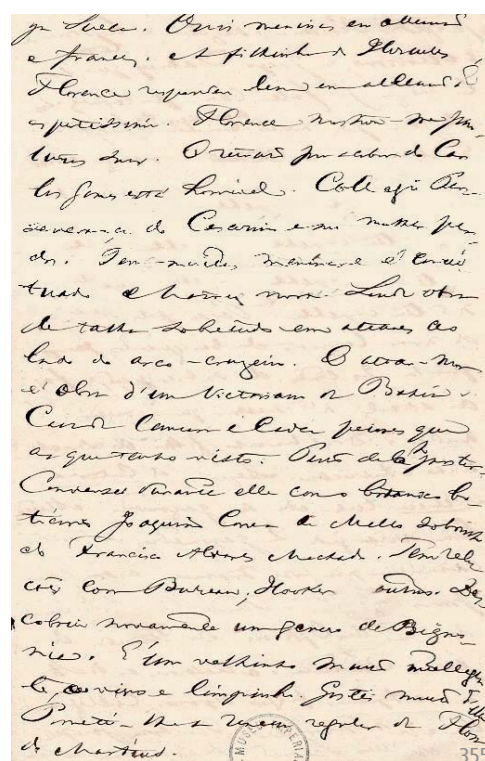 ga Sueca. Ouvi meninas em allemão
e francez. A filhinha de Hercules
Florence respondeu bem em allemão é
espertissima. Florence mostrou-me pin-
turas suas. O retrato por acabar de Car-
los Gomes está horrivel. Collegio Per-
severança de Cesarino e sua mulher par-
dos. Tem muitas meninas e é concei-
tuado. Matriz nova. Linda obra
de talha sobretudo em altares ao
lado do arco-cruzeiro. O altar-mor
é obra d'um Victoriano da Bahia.
Casa de Camara e Cadea peiores que
as que tenho visto. Jantar
Conversei durante elle com o bo-
tanico Joaquim Correa de Mello sobrinho
de Francisco Alvares Machado. Tem rela-
ções com Bureau, Hooker outros. Des-
cobriu novamente um genero de Bigno-
nia. É um velhinho muito intelligen-
te vivo e limpinho. Gostei muito d'elle
Prometti-lhe a remessa regular da Flora
de Martius.
MUSEU IMPERIAL
355